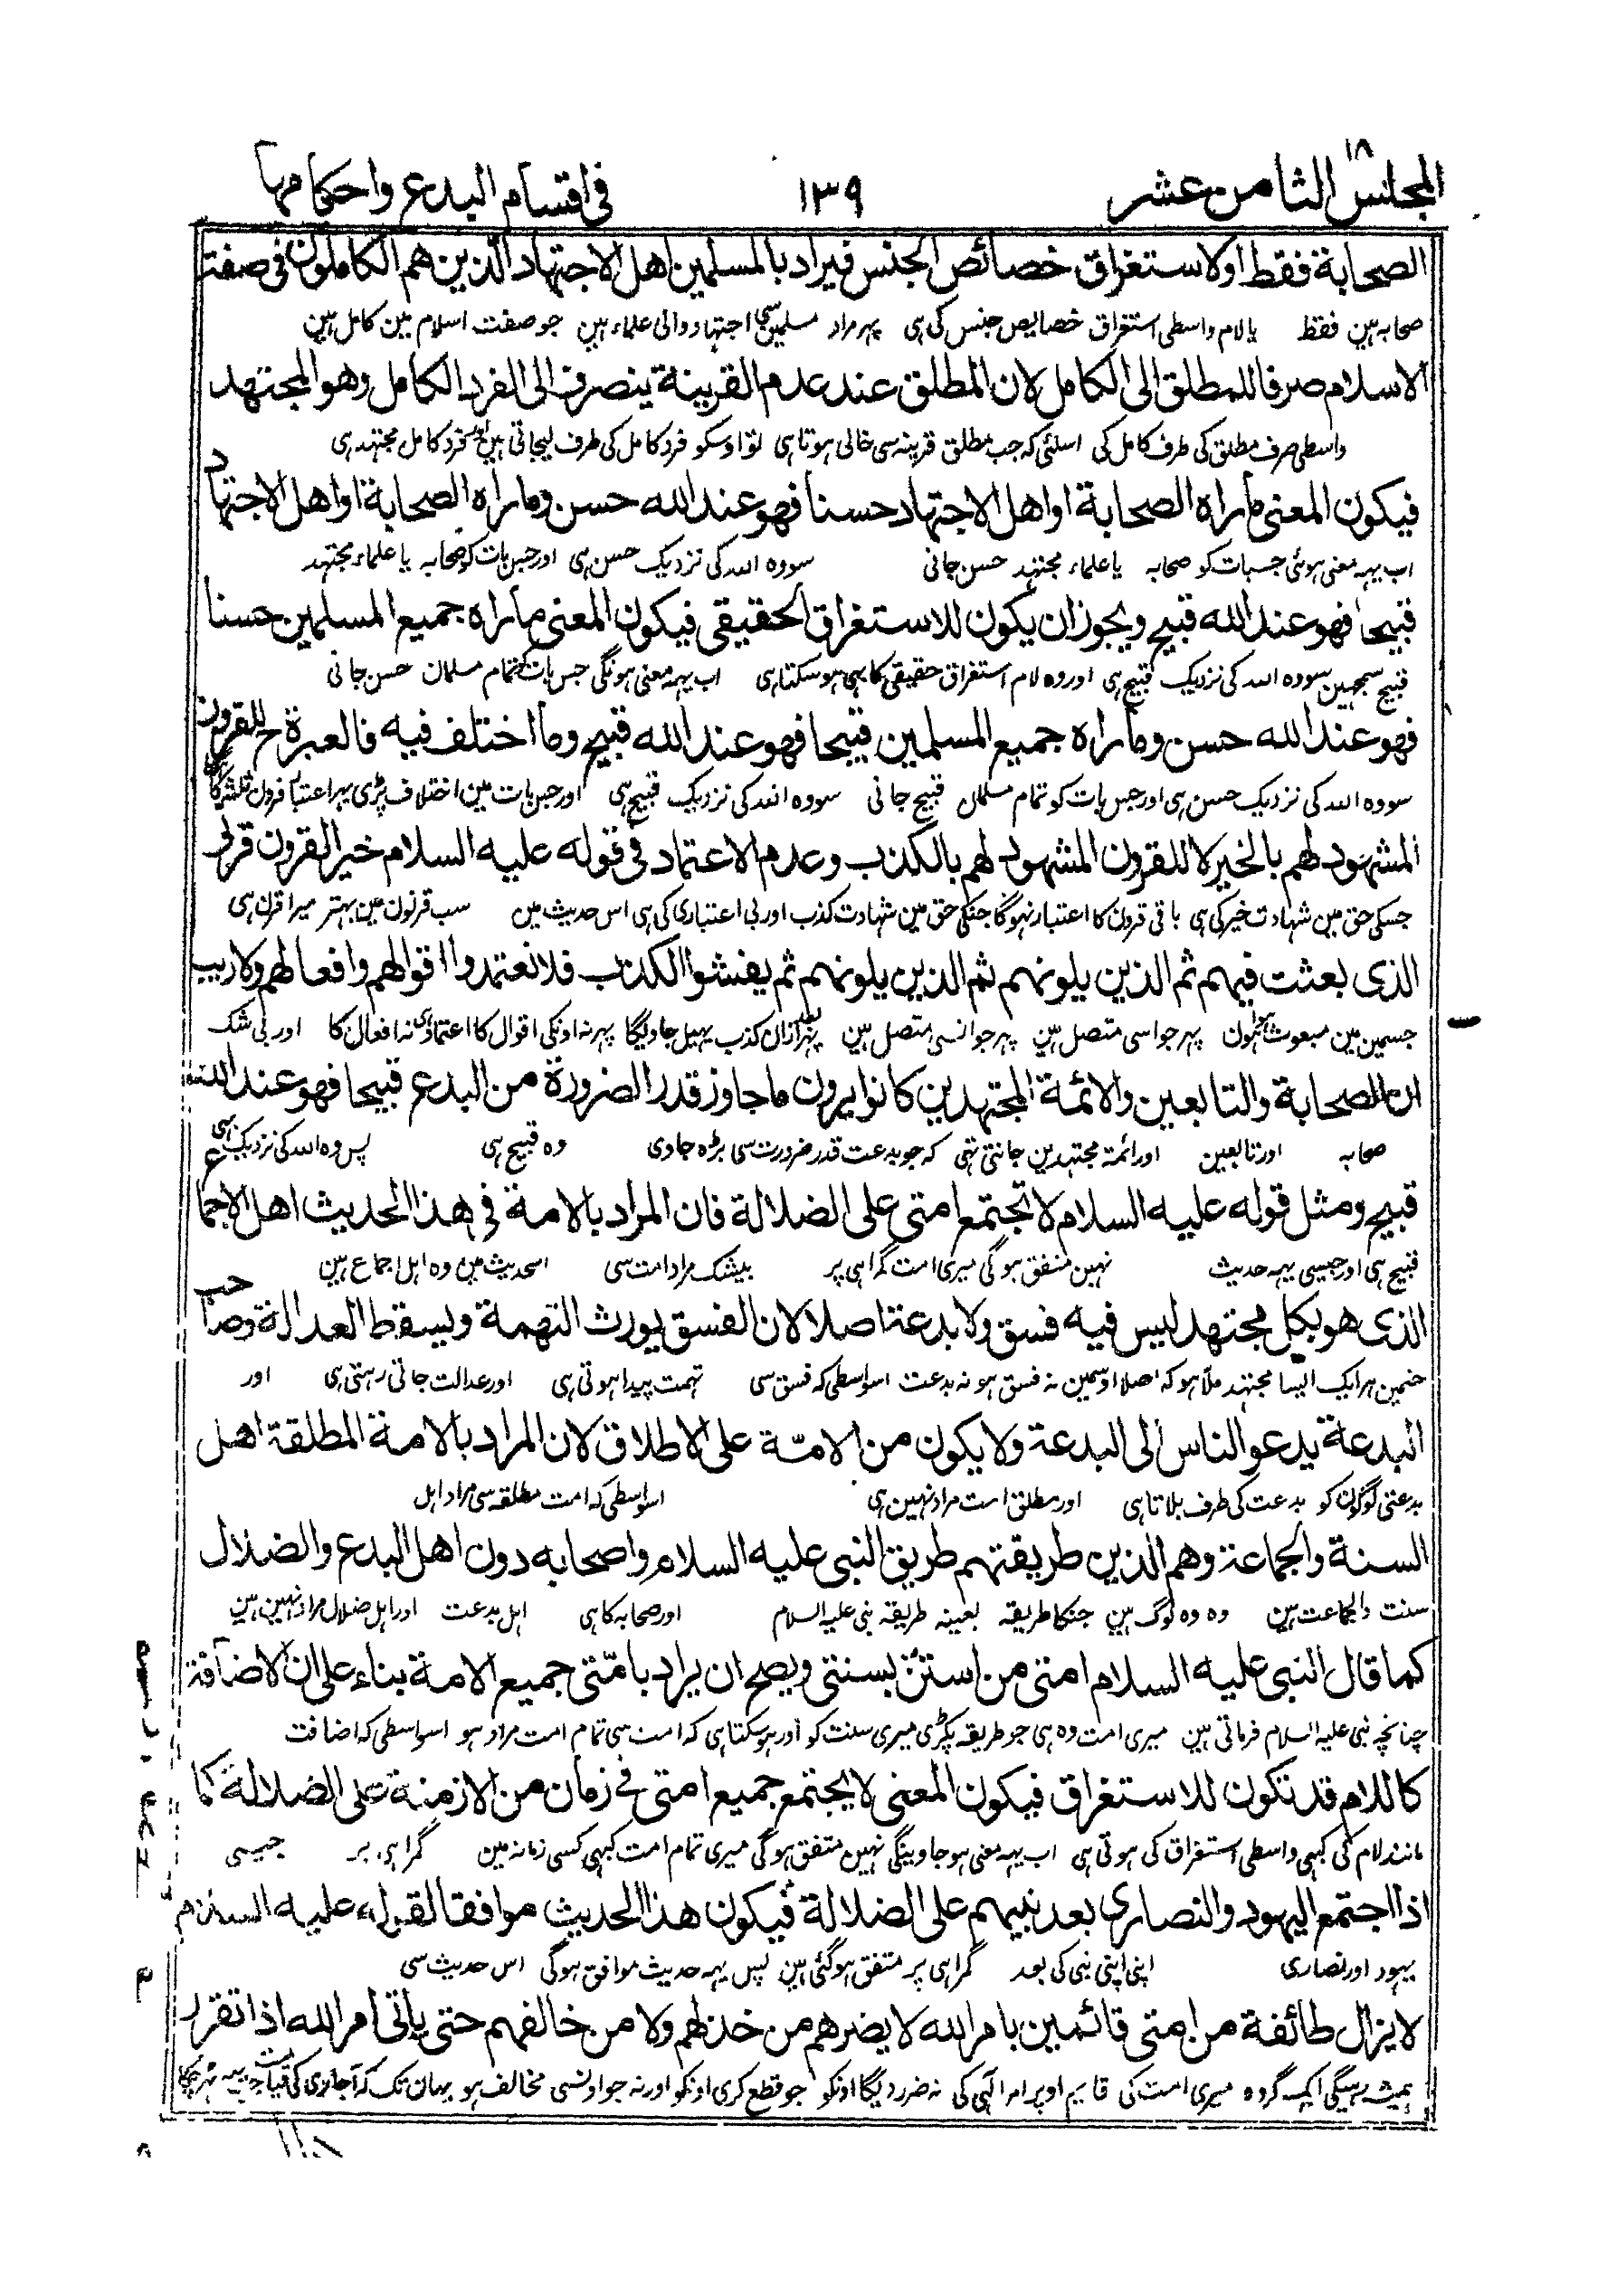 المجلس الثامن عشر ١٨
١٣٩
في اقسام البدع واحكامها
الصحابة فقط اولاستغراق خصائص الجنس فيراد بالمسلمين اهل الاجتهاد الذين هم الكاملون في صفت
صحابہ ہین فقط یا لام واسطی استغراق خصایص جنس کی ہی پہر مراد مسلمین سی اجتہاد والی علماء ہین جو صفت اسلام مین کامل ہین
الاسلام صرفا للمطلق الى الكامل لان المطلق عند عدم القرينة ينصرف الى الفرد الكامل وهو المجتهد
واسطی صرف مطلق کی طرف کامل کی اسلئی کہ جب مطلق قرینہ سی خالی ہوتا ہی تو اوسکو فرد کامل کی طرف لیجاتی ہین اور فرد کامل مجتہد ہی
فيكون المعنى ما راه الصحابة او اهل الاجتهاد حسنا فهو عند الله حسن وما راه الصحابة او اهل الاجتهاد
اب یہہ معنی ہوئی جسبات کو صحابہ یا علماء مجتہد حسن جانی سو وہ اللہ کی نزدیک حسن ہی اور جس بات کو صحابہ یا علماء مجتہد
قبيحا فهو عند الله قبيح ويجوز ان يكون للاستغراق الحقيقي فيكون المعنى ما راه جميع المسلمين حسنا
قبیح سمجہین سو وہ اللہ کی نزدیک قبیح ہی اور وہ لام استغراق حقیقی کا بہی ہو سکتا ہی اب یہہ معنی ہونگی جس بات کو تمام مسلمان حسن جانی
فهو عند الله حسن وما راه جميع المسلمين قبيحا فهو عند الله قبيح وما اختلف فيه فالعبرة ح للقرون
سو وہ اللہ کی نزدیک حسن ہی اور جس بات کو تمام مسلمان قبیح جانی سو وہ اللہ کی نزدیک قبیح ہی اور جس بات مین اختلاف پڑی پہر اعتبار قرون ثلثہ کا
المشهود لهم بالخير لا للقرون المشهود لهم بالكذب وعدم الاعتماد في قوله عليه السلام خير القرون قرني
جسکی حق مین شہادت خیر کی ہی باقی قرون کا اعتبار نہوگا جنکی حق مین شہادت کذب اور بی اعتباری کی ہی اس حدیث مین سب قرنون مین بہتر میرا قرن ہی
الذي بعثت فيهم ثم الذين يلونهم ثم الذين يلونهم ثم يفشوا الكذب فلا تعتمدوا اقوالهم وافعالهم ولا ريب
جسمین مین مبعوث ہوا ہون پہر جو اسی متصل ہین پہر جو انسی متصل ہین پہر بعد ازان کذب پہیل جاویگا پہر نہ اونکی اقوال کا اعتماد ہی نہ افعال کا اور بی شک
ان الصحابة والتابعين والائمة المجتهدين كانوا يرون ما جاوز قدر الضرورة من البدع قبيحا فهو عند الله
صحابہ اور تابعین اور ائمہ مجتہدین جانتی تہی کہ جو بدعت قدر ضرورت سی بڑہ جاوی وہ قبیح ہی پس وہ اللہ کی نزدیک ہی
قبيح ومثل قوله عليه السلام لا تجتمع امتي على الضلالة فان المراد بالامة في هذا الحديث اهل الاجماع
قبیح ہی اور جیسی یہہ حدیث نہین متفق ہوگی میری امت گمراہی پر بیشک مراد امت سی اسحدیث مین وہ اہل اجماع ہین
الذي هو بكل مجتهد ليس فيه فسق ولا بدعة اصلا لان الفسق يورث التهمة ويسقط العدالة وصاحب
جنمین ہر ایک ایسا مجتہد ملا ہو کہ اصلا اوسمین نہ فسق ہو نہ بدعت اسواسطی کہ فسق سی تہمت پیدا ہوتی ہی اور عدالت جاتی رہتی ہی اور
البدعة يدعو الناس الى البدعة ولا يكون من الامّة على الاطلاق لان المراد بالامة المطلقة اهل
بدعتی لوگون کو بدعت کی طرف بلاتا ہی اور مطلق امت مراد نہین ہی اسواسطی کہ امت مطلقہ سی مراد اہل
السنة والجماعة وهم الذين طريقتهم طريق النبي عليه السلام واصحابه دون اهل البدع والضلال
سنت والجماعت ہین وہ وہ لوگ ہین جنکا طریقہ بعینہ طریقہ نبی علیہ السلام اور صحابہ کا ہی اہل بدعت اور اہل ضلال مراد نہین ہین
كما قال النبي عليه السلام امتي من استنّ بسنتي ويصح ان يراد بامّتي جميع الامة بناء على ان الاضافة
چنانچہ نبی علیہ السلام فرماتی ہین میری امت وہ ہی جو طریقہ پکڑی میری سنت کو اور ہو سکتا ہی کہ امت سی تمام امت مراد ہو اسواسطی کہ اضافت
كاللام قد تكون للاستغراق فيكون المعنى لا يجتمع جميع امتي في زمان من الازمنة على الضلالة كما
مانند لام کی کبہی واسطی استغراق کی ہوتی ہی اب یہہ معنی ہو جاوینگی نہین متفق ہوگی میری تمام امت کبہی کسی زمانہ مین گمراہی پر جیسی
اذا اجتمع اليهود والنصارى بعد نبيهم على الضلالة فيكون هذا الحديث موافقا لقوله عليه السلام
یہود اور نصاری اپنی اپنی نبی کی بعد گمراہی پر متفق ہوگئی ہین پس یہہ حدیث موافق ہوگی اس حدیث سی
لا يزال طائفة من امتي قائمين بامر الله لا يضرهم من خذلهم ولا من خالفهم حتى ياتي امر الله اذا تقرر
ہمیشہ رہیگی ایک گروہ میری امت کی قایم اوپر امر الہی کی نہ ضرر دیگا اونکو جو قطع کری اونکو اور نہ جو اونسی مخالف ہو یہان تک کہ آجاوی